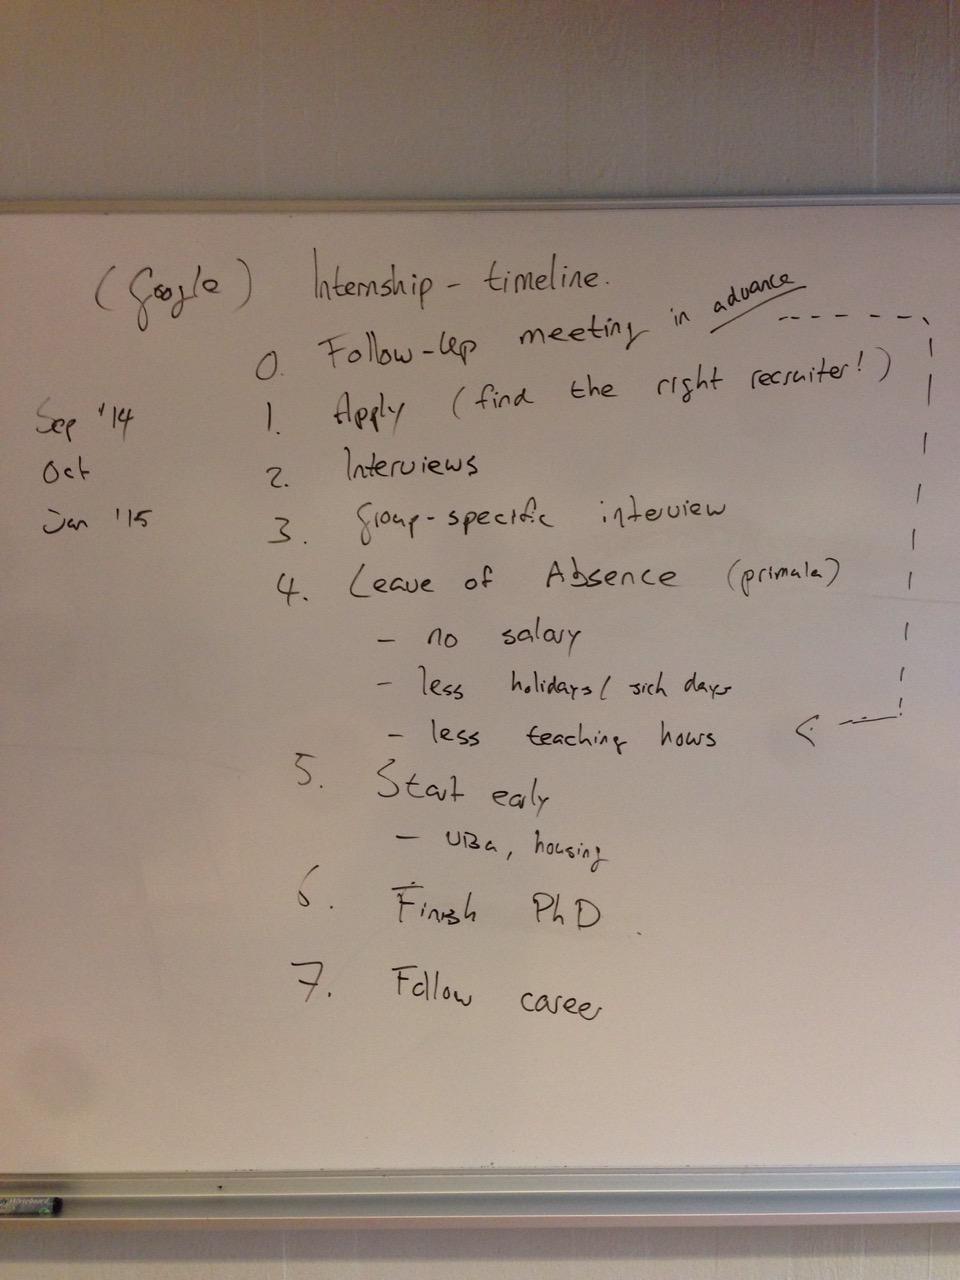 (Google) Internship - timeline.
0. Follow-Up meeting in advance
Sep '14 1. Apply (find the right recruiter!)
Oct 2. Interviews
Jan '15 3. Group-specific interview
4. Leave of Absence (primula)
- no salary
- less holidays / sick days
- less teaching hours
5. Start early
- housing
6. Finish PhD
7. Follow career